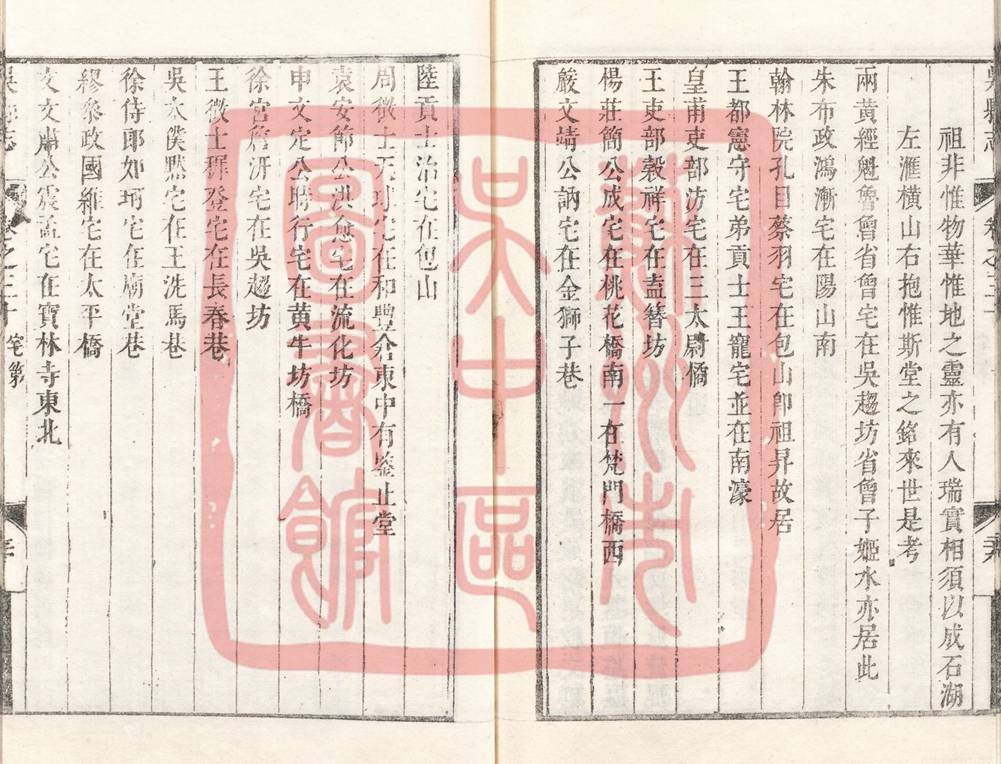 祖非惟物華惟地之靈亦有人瑞實相須以成石湖
左滙橫山右抱惟斯堂之銘來世是考
兩黃經魁魯曾省曾宅在吳趨坊省曾子姬水亦居此
朱布政鴻漸宅在陽山南
翰林院孔目蔡羽宅在包山卽祖昇故居
王都憲守宅弟貢士王寵宅並在南濠
皇甫吏部汸宅在三太尉橋
王吏部穀祥宅在盍簪坊
楊莊簡公成宅在桃花橋南一在梵門橋西
嚴文靖公訥宅在金獅子巷
陸貢士治宅在包山
周徵士天球宅在和豐倉東中有鑒止堂
袁安節公洪愈宅在流化坊
申文定公時行宅在黃牛坊橋
徐宮詹㳂宅在吳趨坊
王徵士穉登宅在長春巷
吳太僕默宅在王洗馬巷
徐侍郎如珂宅在廟堂巷
繆參政國維宅在太平橋
文文肅公震孟宅在寶林寺東北
宅第
蘇州市
吳中區
圖書館